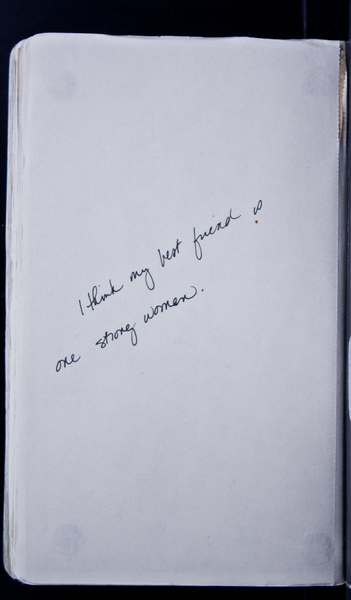 I think my best friend is
one strong women.